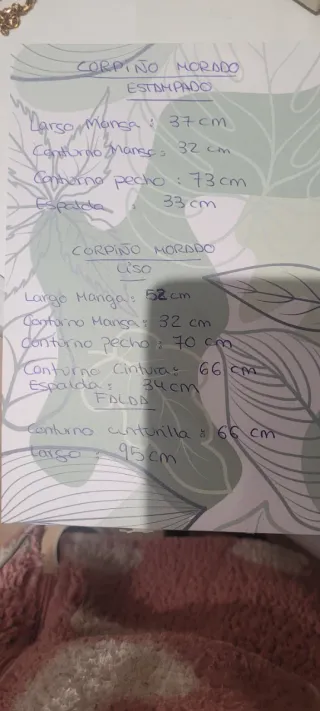 CORPIÑO MORADO
ESTAMPADO
Largo Manga : 37 cm
Contorno Manga : 32 cm
Contorno pecho : 73 cm
Espalda : 33 cm
CORPIÑO MORADO
LISO
Largo Manga : 52 cm
Contorno Manga : 32 cm
Contorno pecho : 70 cm
Contorno Cintura : 66 cm
Espalda : 34 cm
FALDA
Contorno cinturilla : 66 cm
Largo : 95 cm